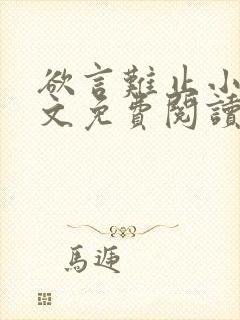 欲言難止小
文免費閱讀
馬遞